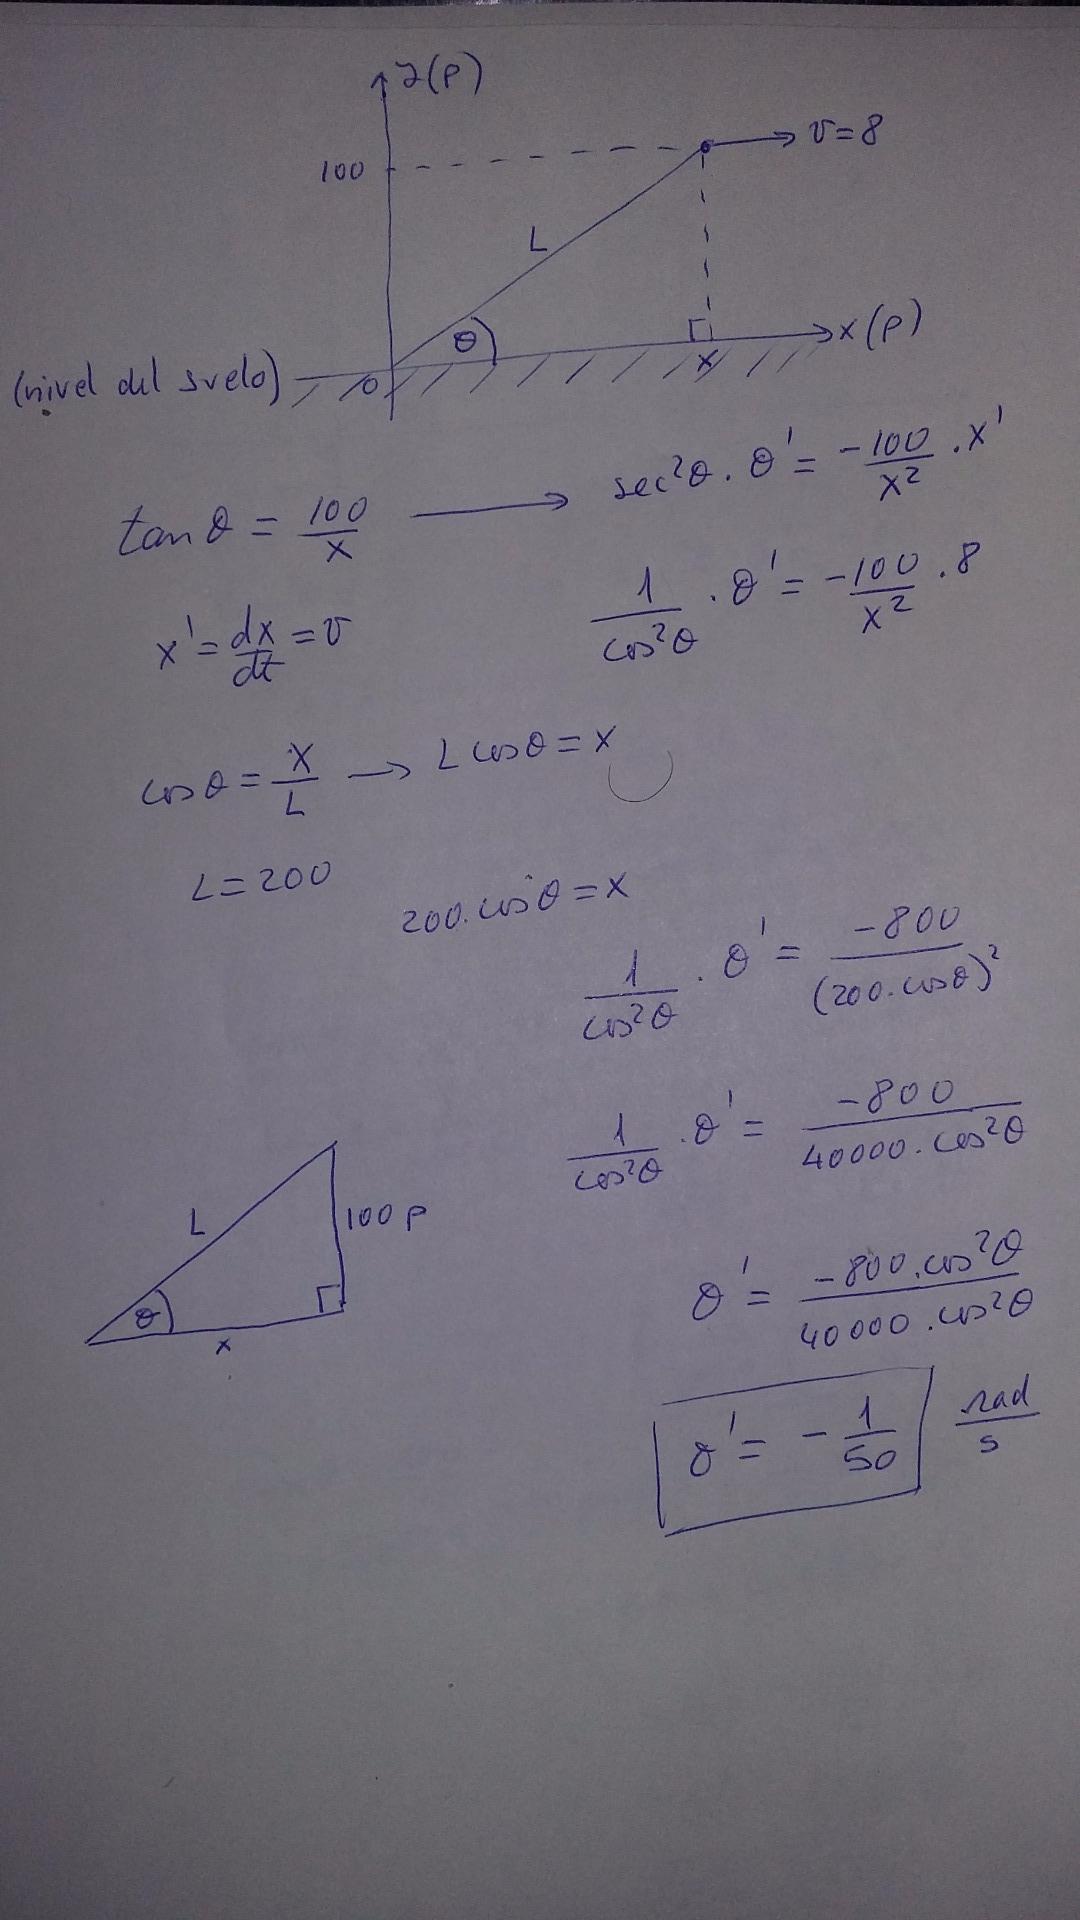 z(p)
100
v=8
L
θ
x(p)
(nivel del suelo)
0
x
tan θ = 100/x → sec²θ . θ' = -100/x² . x'
x' = dx/dt = v
1/cos²θ . θ' = -100/x² . 8
cos θ = x/L → L cos θ = x
L = 200
200. cos θ = x
1/cos²θ . θ' = -800/(200. cos θ)²
1/cos²θ . θ' = -800/40000. cos²θ
L
100 p
θ
x
θ' = -800. cos²θ/40000 . cos²θ
θ' = - 1/50 rad/s